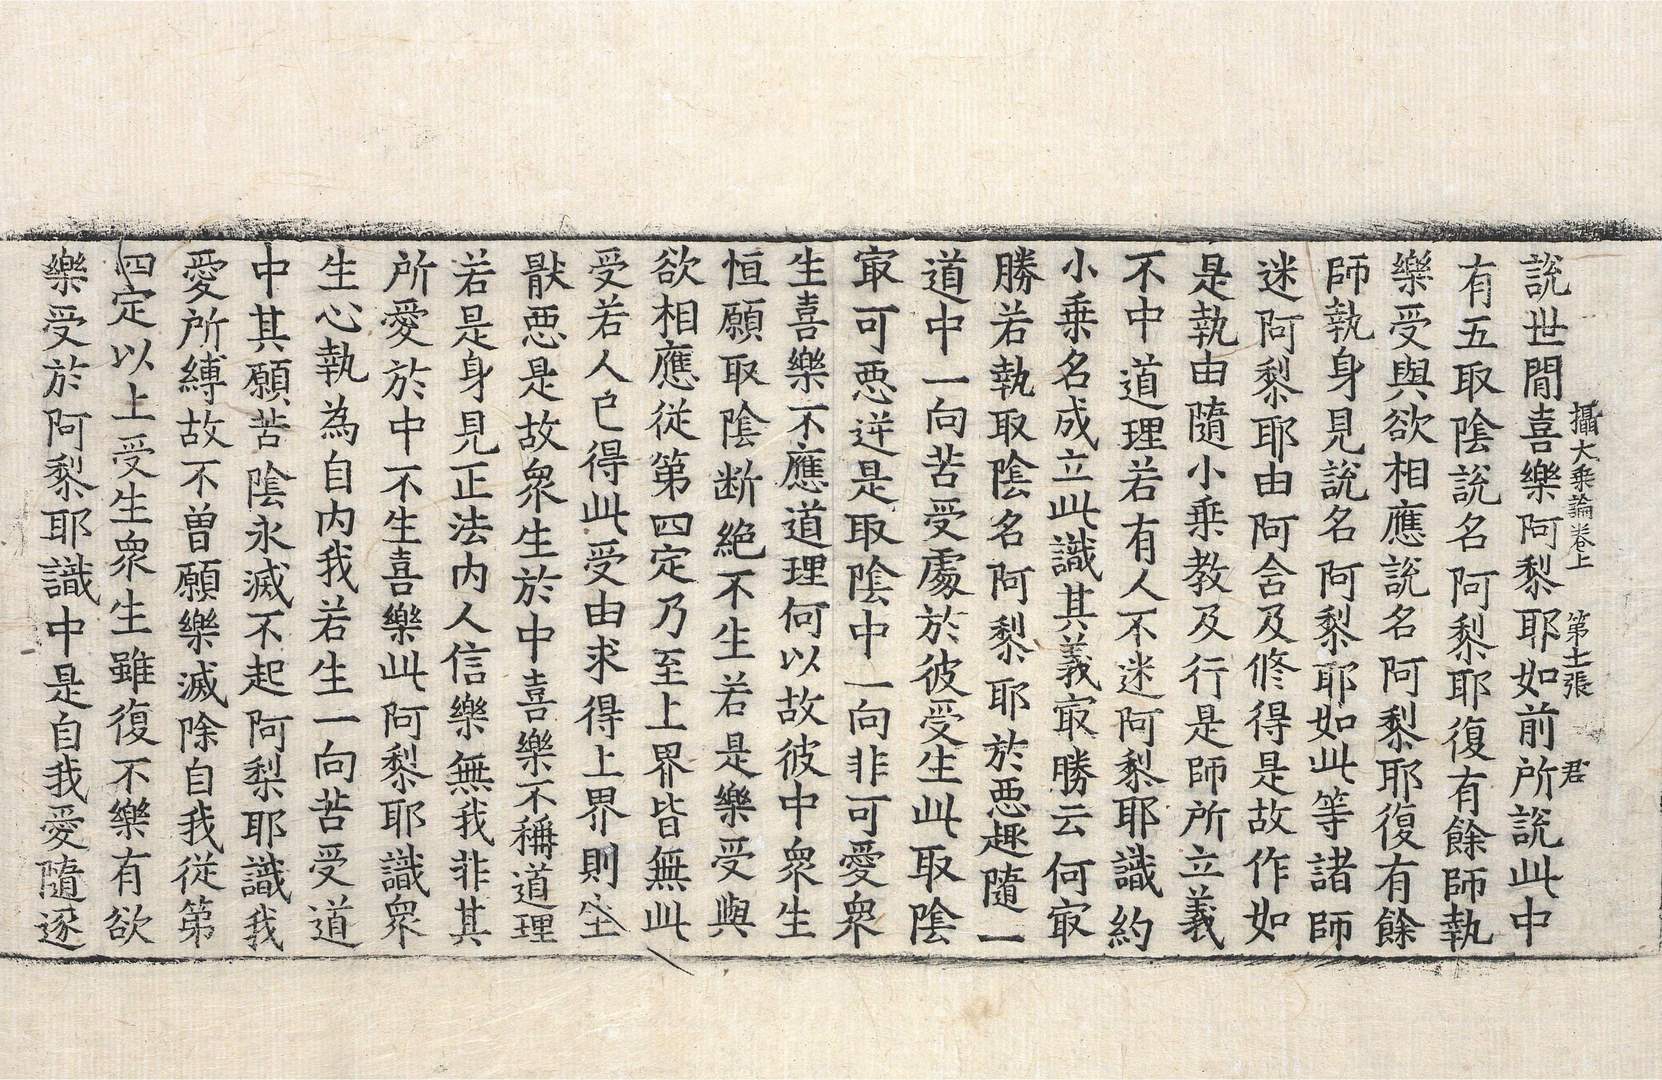 攝大乗論卷上 第十一張 君
說世閒喜樂阿黎耶如前所說此中
有五取陰說名阿黎耶復有餘師執
樂受與欲相應說名阿黎耶復有餘
師執身見說名阿黎耶如此等諸師
迷阿黎耶由阿含及修得是故作如
是執由隨小乗教及行是師所立義
不中道理若有人不迷阿黎耶識約
小乗名成立此識其義㝡勝云何㝡
勝若執取陰名阿黎耶於惡趣隨一
道中一向苦受處於彼受生此取陰
㝡可惡逆是取陰中一向非可愛衆
生喜樂不應道理何以故彼中衆生
恒願取陰断絕不生若是樂受與
欲相應從第四定乃至上界皆無此
受若人已得此受由求得上界則生
猒惡是故衆生於中喜樂不稱道理
若是身見正法內人信樂無我非其
所愛於中不生喜樂此阿黎耶識衆
生心執為自內我若生一向苦受道
中其願苦陰永滅不起阿梨耶識我
愛所縛故不曾願樂滅除自我從第
四定以上受生衆生雖復不樂有欲
樂受於阿黎耶識中是自我愛隨逐